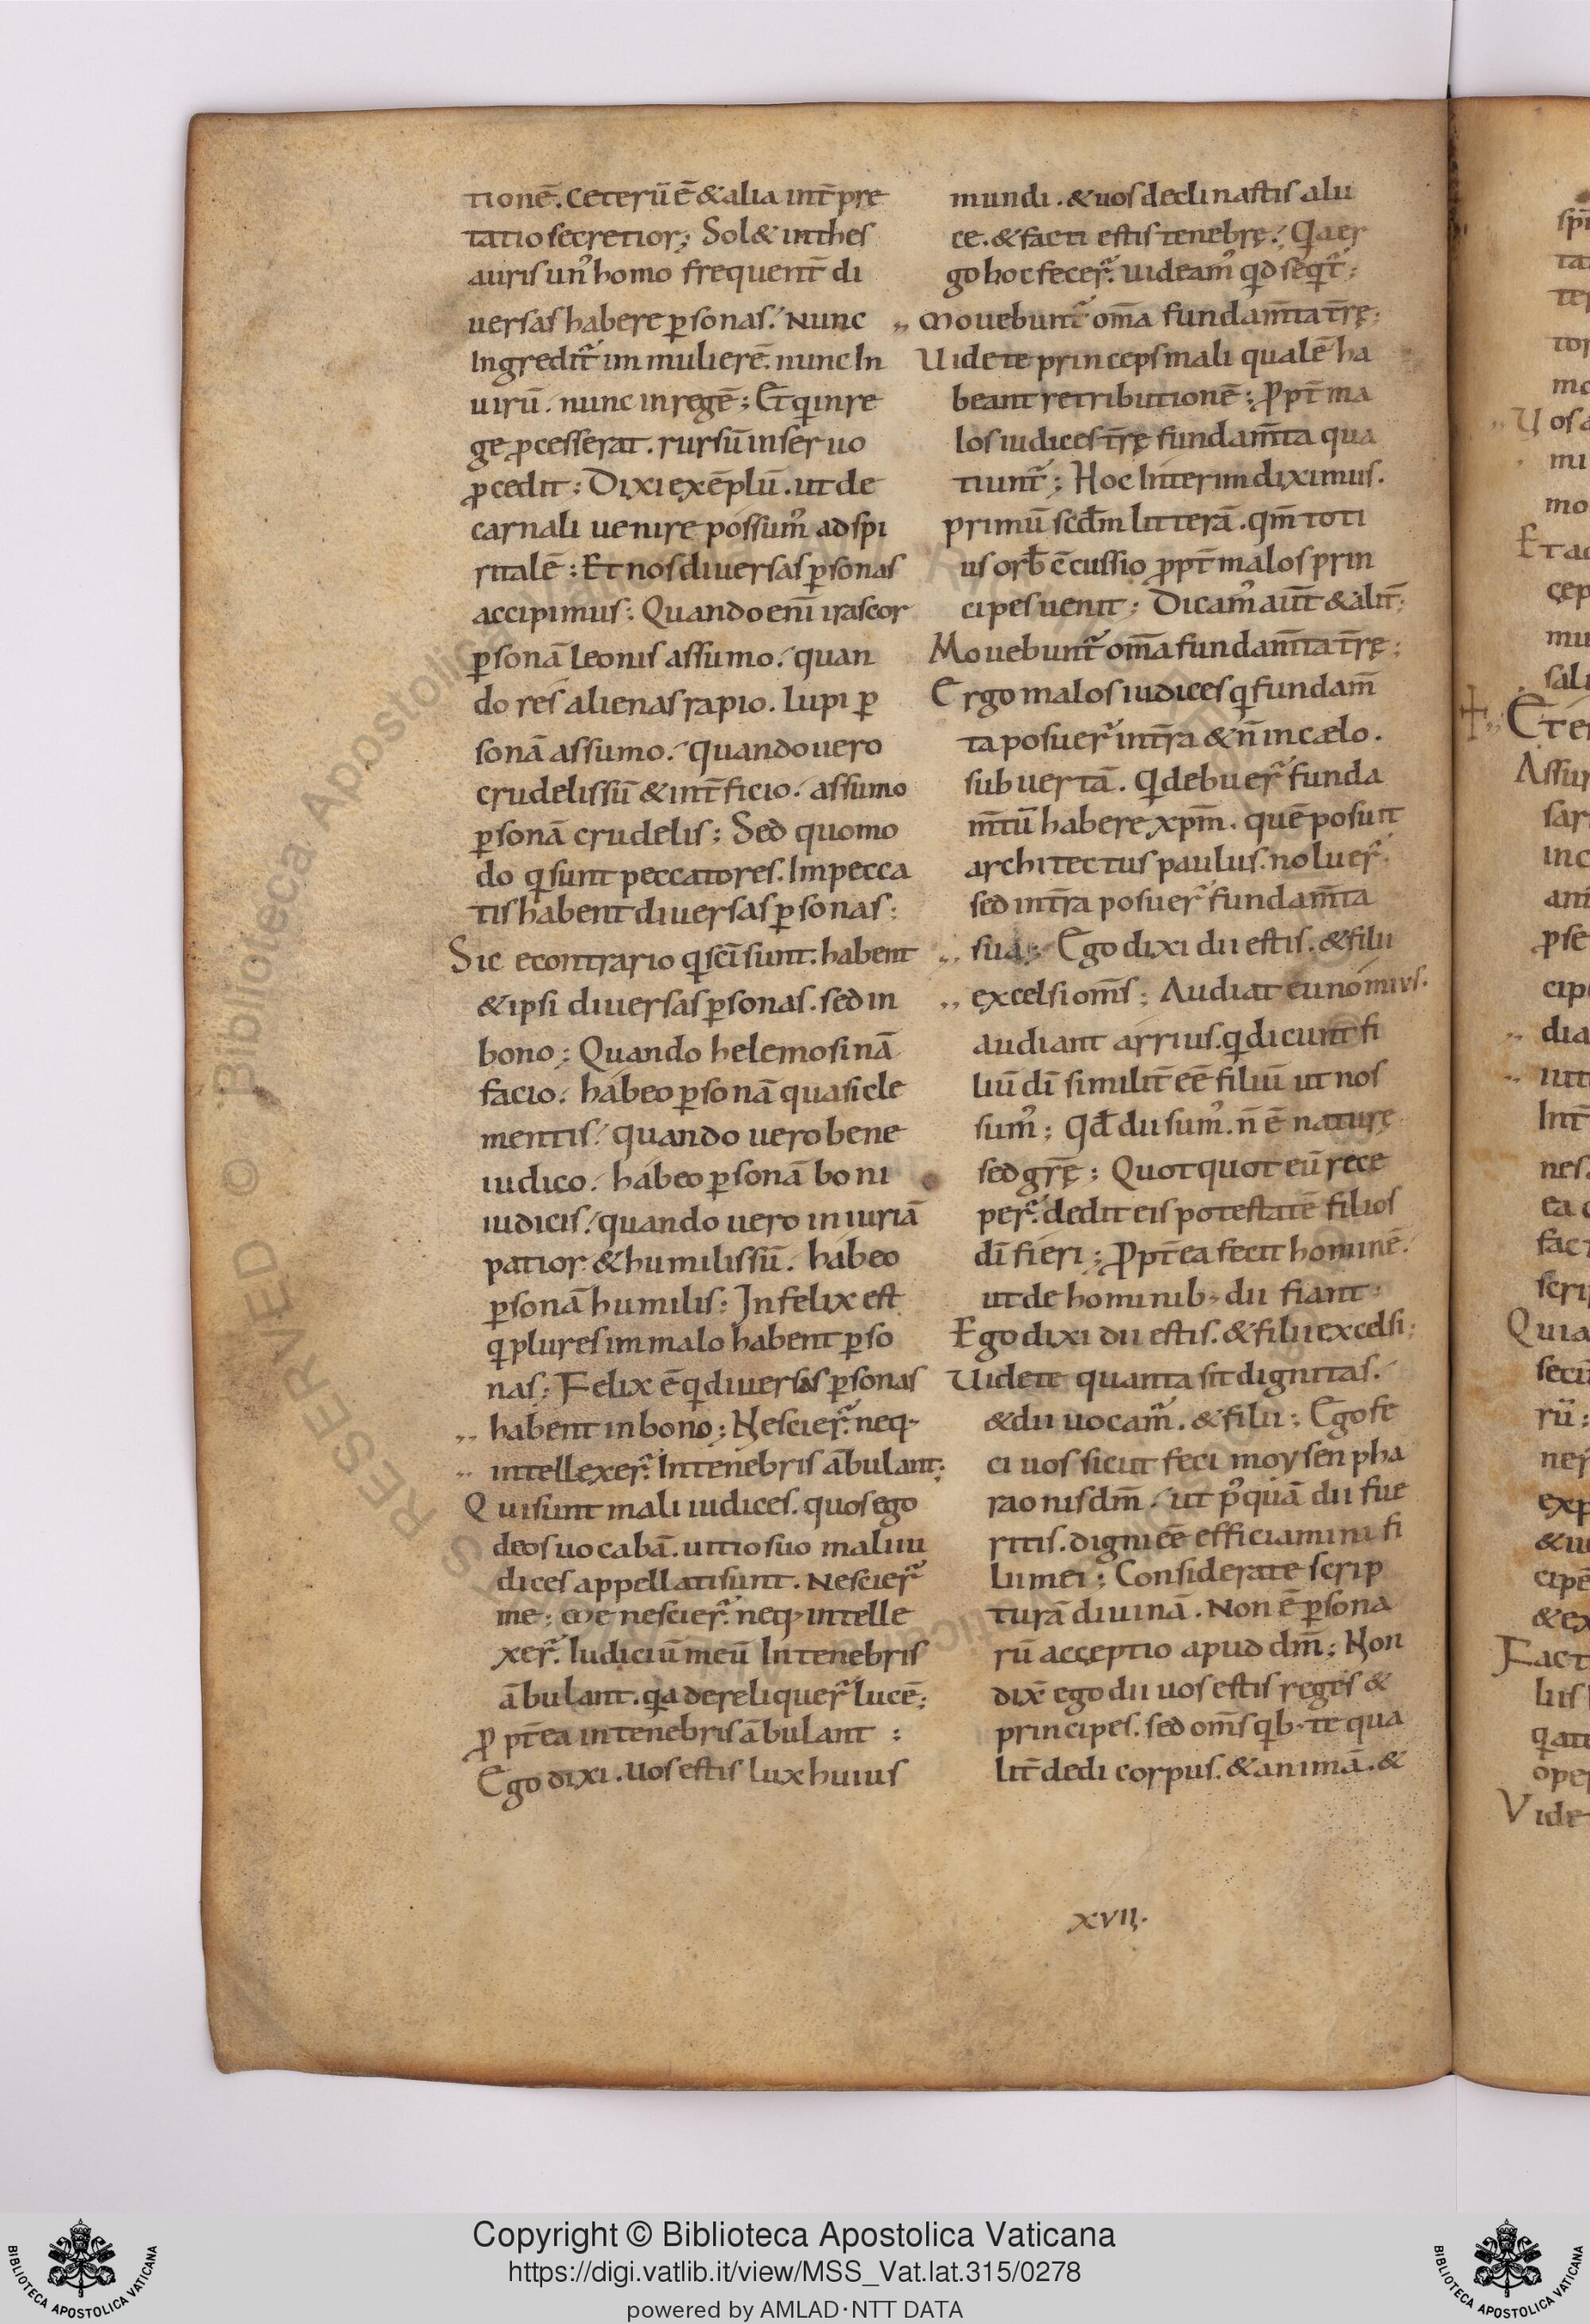 tionē. ceterū ē & alia int̄pre
tatio secretior; Sol & inthes
auris un᾽ homo frequent̄ di
uersas habere ꝑsonas. Nunc
Ingredit᾽ im mulierē. nunc In
uirū. nunc in regē; Et qͥ in re
ge ꝓcesserat. rursū in seruo
ꝓcedit; Dixi exēplū. ut de
carnali uenire possum᾽ ad spi
ritalē; Et nos diuersas ꝑsonas
accipimus; Quando enī irascor
ꝑsonā leonis assumo. quan
do res alienas rapio. lupi ꝑ
sonā assumo. quando uero
crudelissū & int̄ficio. assumo
ꝑsonā crudelis; Sed quomo
do qͥ sunt peccatores. Impecca
tis habent diuersas ꝑsonas;
Sic econtrario qͥ sc̄i sunt. habent
& ipsi diuersas ꝑsonas. sed in
bono; Quando helemosinā
facio. habeo ꝑsonā quasi cle
mentis. quando uero bene
iudico. habeo ꝑsonā boni
iudicis. quando uero iniuriā
patior & humilissū. habeo
ꝑsonā humilis; Infelix est
qͥ plures im malo habent ꝑso
nas; Felix ē qͥ diuersas ꝑsonas
,, habent in bono; Nescier᾽. neq;
,, intellexer᾽. In tenebris ābulant;
Qui sunt mali iudices. quos ego
deos uocabā. uitio suo mali iu
dices appellati sunt. Nescier᾽
me; me nescier᾽. neq; intelle
xer᾽. Iudiciū meū In tenebris
ābulant. qͥa dereliquer᾽ lucē;
ꝓpt̄ea in tenebris ābulant;
Ego dixi. uos estis lux huius
mundi. & uos declinastis a lu
ce. & facti estis tenebrę. Qͥa er
go hoc fecer᾽. uideam᾽ qͥd seqͥt᾽;
,, Mouebunt᾽ om̄a fundam̄ta t̄rę;
Uidete princeps mali qualē ha
beant retributionē; Ꝓpt̄ ma
los iudices t̄rę fundam̄ta qua
tiunt᾽; Hoc Interim diximus.
primū scd̄m litterā. qm̄ toti
us orƀ c̄cussio ꝓpt̄ malos prin
cipes uenit; Dicam᾽ aut̄ & alit̄;
Mouebunt᾽ om̄a fundam̄ta t̄rę;
Ergo malos iudices qͥ fundam̄
ta posuer᾽ in t̄ra & n̄ in cælo.
subuertā. Qͥ debuer᾽ funda
m̄tū habere xp̄m. quē posuit
architectus paulus. noluer᾽.
sed in t̄ra posuer᾽ fundam̄ta
,, sua; Ego dixi dii estis. & filii
,, excelsi om̄s; Audiat eunomius.
audiant arrius. qͥ dicunt fi
liū dī similit̄ ēe filiū ut nos
sum᾽; Qd̄ dii sum᾽. n̄ ē naturę
sed gr̄ę; Quotquot eū rece
per᾽. dedit eis potestatē filios
dī fieri; Ꝓpt̄ea fecit hominē.
ut de hominib; dii fiant;
Ego dixi dii estis. & filii excelsi;
Uidete quanta sit dignitas.
& dii uocam᾽. & filii; Ego fe
ci uos sicut feci moysen pha
raonis dm̄. ut p᾽quā dii fue
ritis. digni ēe efficiamini fi
lii mei; Considerate scrip
turā diuinā. Non ē ꝑsona
rū acceptio apud dm̄; Non
dix̄ ego dii uos estis reges &
principes. sed om̄s qͥb; te qua
lit̄ dedi corpus. & animā. &
xvii.
Copyright © Biblioteca Apostolica Vaticana
https://digi.vatlib.it/view/MSS_Vat.lat.315/0278
powered by AMLAD·NTT DATA